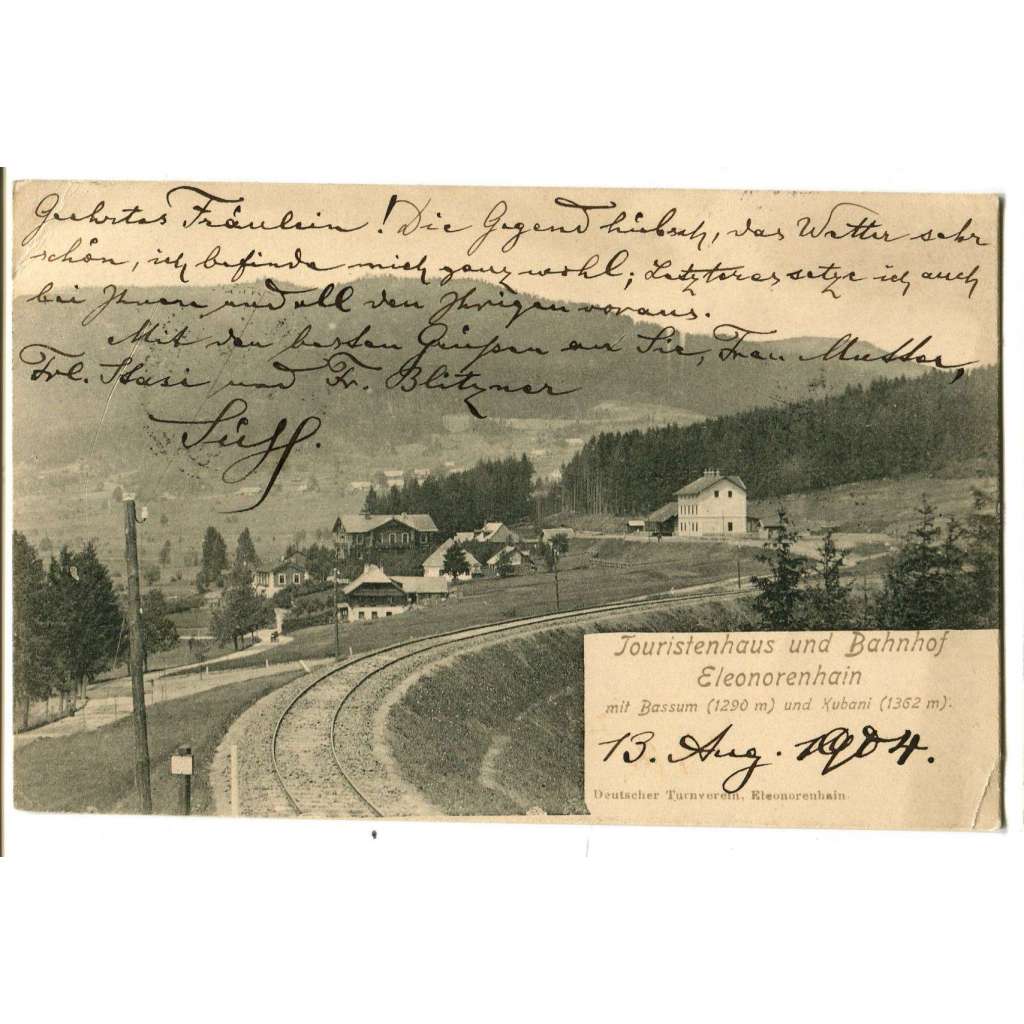 Geehrtes Fräulein! Die Gegend hübsch, das Wetter sehr
schön, ich befinde mich ganz wohl; Letzteres setze ich auch
bei Ihnen und all den Ihrigen voraus.
Mit den besten Grüßen an Sie, Frau Mutter,
Frl. Stasi und Fr. Blitzner
Touristenhaus und Bahnhof
Eleonorenhain
mit Bassum (1290 m) und Kubani (1362 m).
13. Aug. 1904.
Deutscher Turnverein, Eleonorenhain